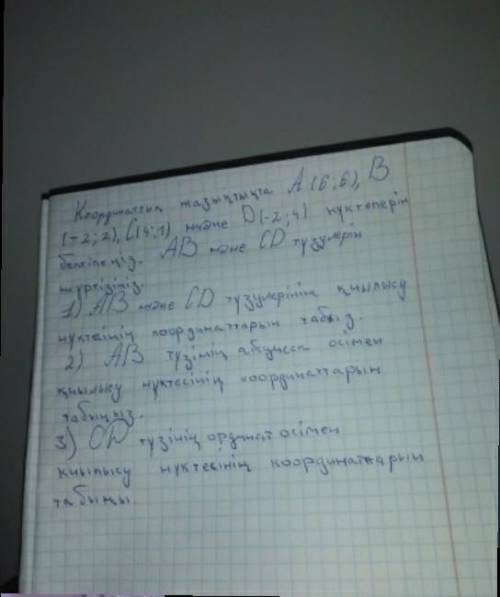 Координаттық жазықтықта A (6;6), B
(-2;2), C(4;1) және D(-2;4) нүктелерін
белгілеңіз. AB және CD түзулерін
жүргізіңіз.
1) AB және CD түзулерінің қиылысу
нүктесінің координаттарын табыңыз.
2) AB түзінің абцисса осімен
қиылысу нүктесінің координаттарын
табыңыз.
3) CD түзінің ординат осімен
қиылысу нүктесінің координаттарын
табыңы.